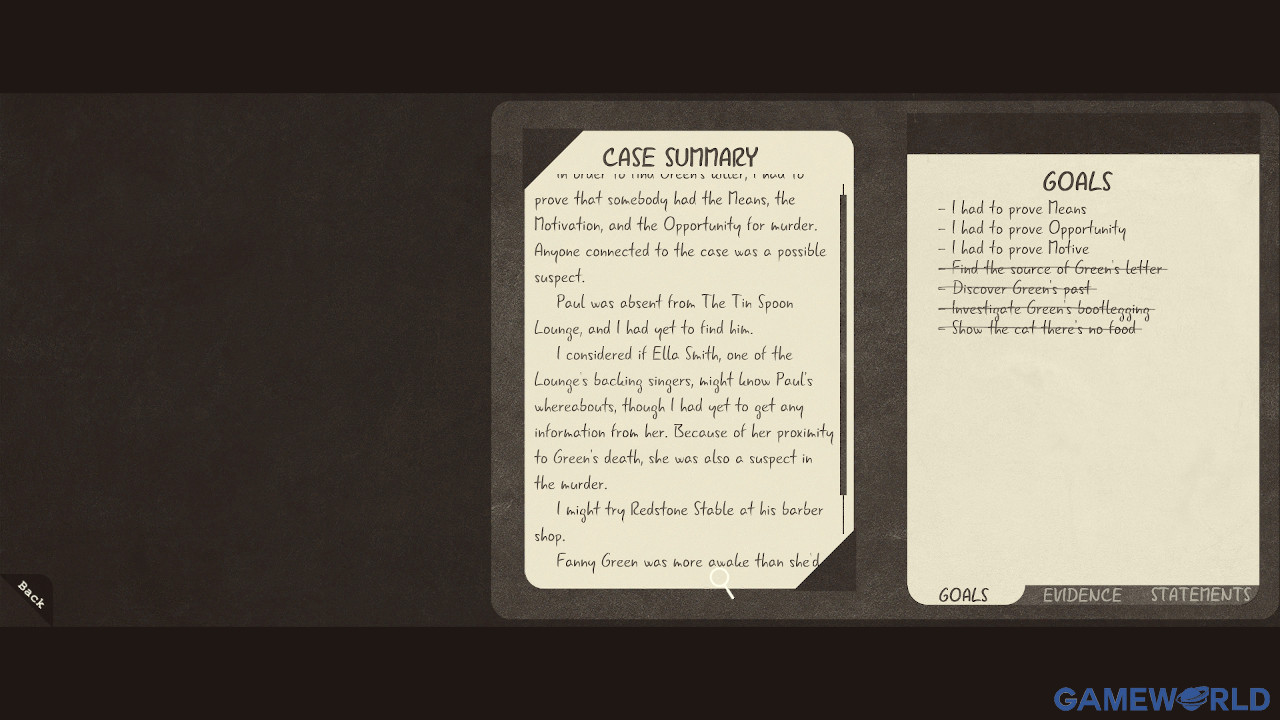 CASE SUMMARY
In order to find Green's killer, I had to
prove that somebody had the Means, the
Motivation, and the Opportunity for murder.
Anyone connected to the case was a possible
suspect.
Paul was absent from The Tin Spoon
Lounge, and I had yet to find him.
I considered if Ella Smith, one of the
Lounge's backing singers, might know Paul's
whereabouts, though I had yet to get any
information from her. Because of her proximity
to Green's death, she was also a suspect in
the murder.
I might try Redstone Stable at his barber
shop.
Fanny Green was more awake than she'd
GOALS
- I had to prove Means
- I had to prove Opportunity
- I had to prove Motive
- Find the source of Green's letter
- Discover Green's past
- Investigate Green's bootlegging
- Show the cat there's no food
GOALS
EVIDENCE
STATEMENTS
Back
GAMEWORLD